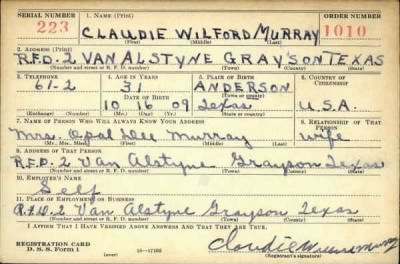 SERIAL NUMBER 1. NAME (Print) ORDER NUMBER
223 CLAUDIE WILFORD MURRAY 1010
(First) (Middle) (Last)
2. ADDRESS (Print)
R.F.D. 2 VAN ALSTYNE GRAYSON TEXAS
(Number and street or R. F. D. number) (Town) (County) (State)
3. TELEPHONE 4. AGE IN YEARS 5. PLACE OF BIRTH 6. COUNTRY OF CITIZENSHIP
61-2 31 ANDERSON
(Town or county)
DATE OF BIRTH
10 16 09 Texas U.S.A.
(Exchange) (Number) (Mo.) (Day) (Yr.) (State or country)
7. NAME OF PERSON WHO WILL ALWAYS KNOW YOUR ADDRESS 8. RELATIONSHIP OF THAT PERSON
Mrs. Opal Dee Murray wife
(Mr., Mrs., Miss) (First) (Middle) (Last)
9. ADDRESS OF THAT PERSON
R.F.D. 2 Van Alstyne Grayson Texas
(Number and street or R. F. D. number) (Town) (County) (State)
10. EMPLOYER'S NAME
Self
11. PLACE OF EMPLOYMENT OR BUSINESS
R.F.D. 2 Van Alstyne Grayson Texas
(Number and street or R. F. D. number) (Town) (County) (State)
I AFFIRM THAT I HAVE VERIFIED ABOVE ANSWERS AND THAT THEY ARE TRUE.
REGISTRATION CARD
D. S. S. Form 1 (over) 16—17105 Claudie Murray
(Registrant's signature)